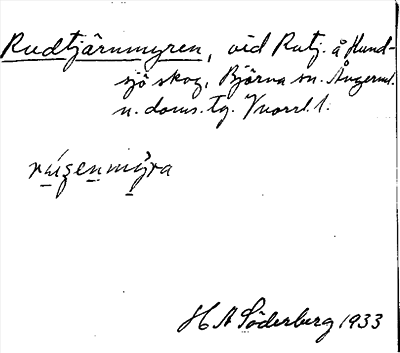 Rudtjärnmyren, vid Rutj. å Hund-
sjö skog, Björna sn. Ångerml.
n. doms. tg. Vnorrl. l.
H A Söderberg 1933